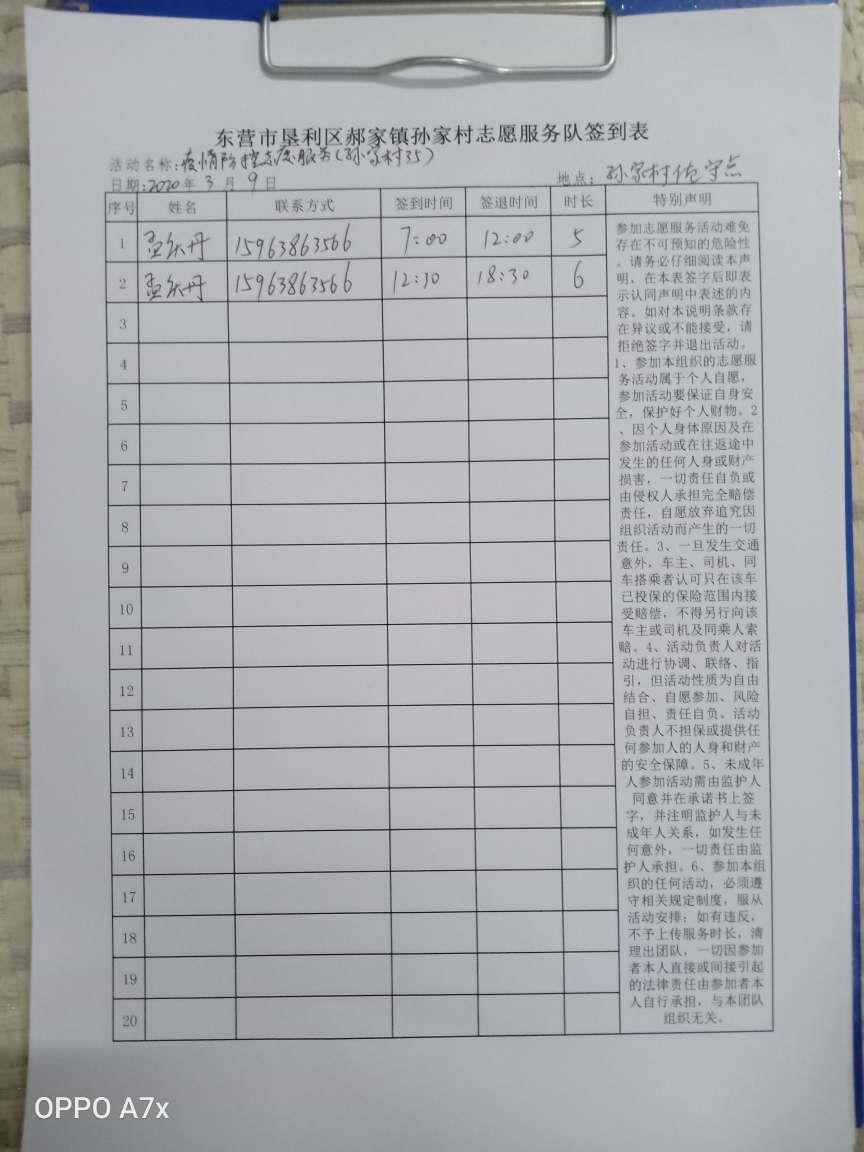 东营市垦利区郝家镇孙家村志愿服务队签到表
活动名称:疫情防控志愿服务(孙家村35)
日期:2020年3月9日 地点:孙家村值守点
序号 姓名 联系方式 签到时间 签退时间 时长 特别声明
1 孟庆丹 15963863566 7:00 12:00 5
2 孟庆丹 15963863566 12:30 18:30 6
3
4
5
6
7
8
9
10
11
12
13
14
15
16
17
18
19
20
参加志愿服务活动难免
存在不可预知的危险性
。请务必仔细阅读本声
明，在本表签字后即表
示认同声明中表述的内
容。如对本说明条款存
在异议或不能接受，请
拒绝签字并退出活动。
1、参加本组织的志愿服
务活动属于个人自愿，
参加活动要保证自身安
全，保护好个人财物。2
、因个人身体原因及在
参加活动或在往返途中
发生的任何人身或财产
损害，一切责任自负或
由侵权人承担完全赔偿
责任，自愿放弃追究因
组织活动而产生的一切
责任。3、一旦发生交通
意外，车主、司机、同
车搭乘者认可只在该车
已投保的保险范围内接
受赔偿，不得另行向该
车主或司机及同乘人索
赔。4、活动负责人对活
动进行协调、联络、指
引，但活动性质为自由
结合、自愿参加、风险
自担、责任自负。活动
负责人不担保或提供任
何参加人的人身和财产
的安全保障。5、未成年
人参加活动需由监护人
同意并在承诺书上签
字，并注明监护人与未
成年人关系，如发生任
何意外，一切责任由监
护人承担。6、参加本组
织的任何活动，必须遵
守相关规定制度，服从
活动安排；如有违反，
不予上传服务时长，清
理出团队，一切因参加
者本人直接或间接引起
的法律责任由参加者本
人自行承担，与本团队
组织无关。
OPPO A7x